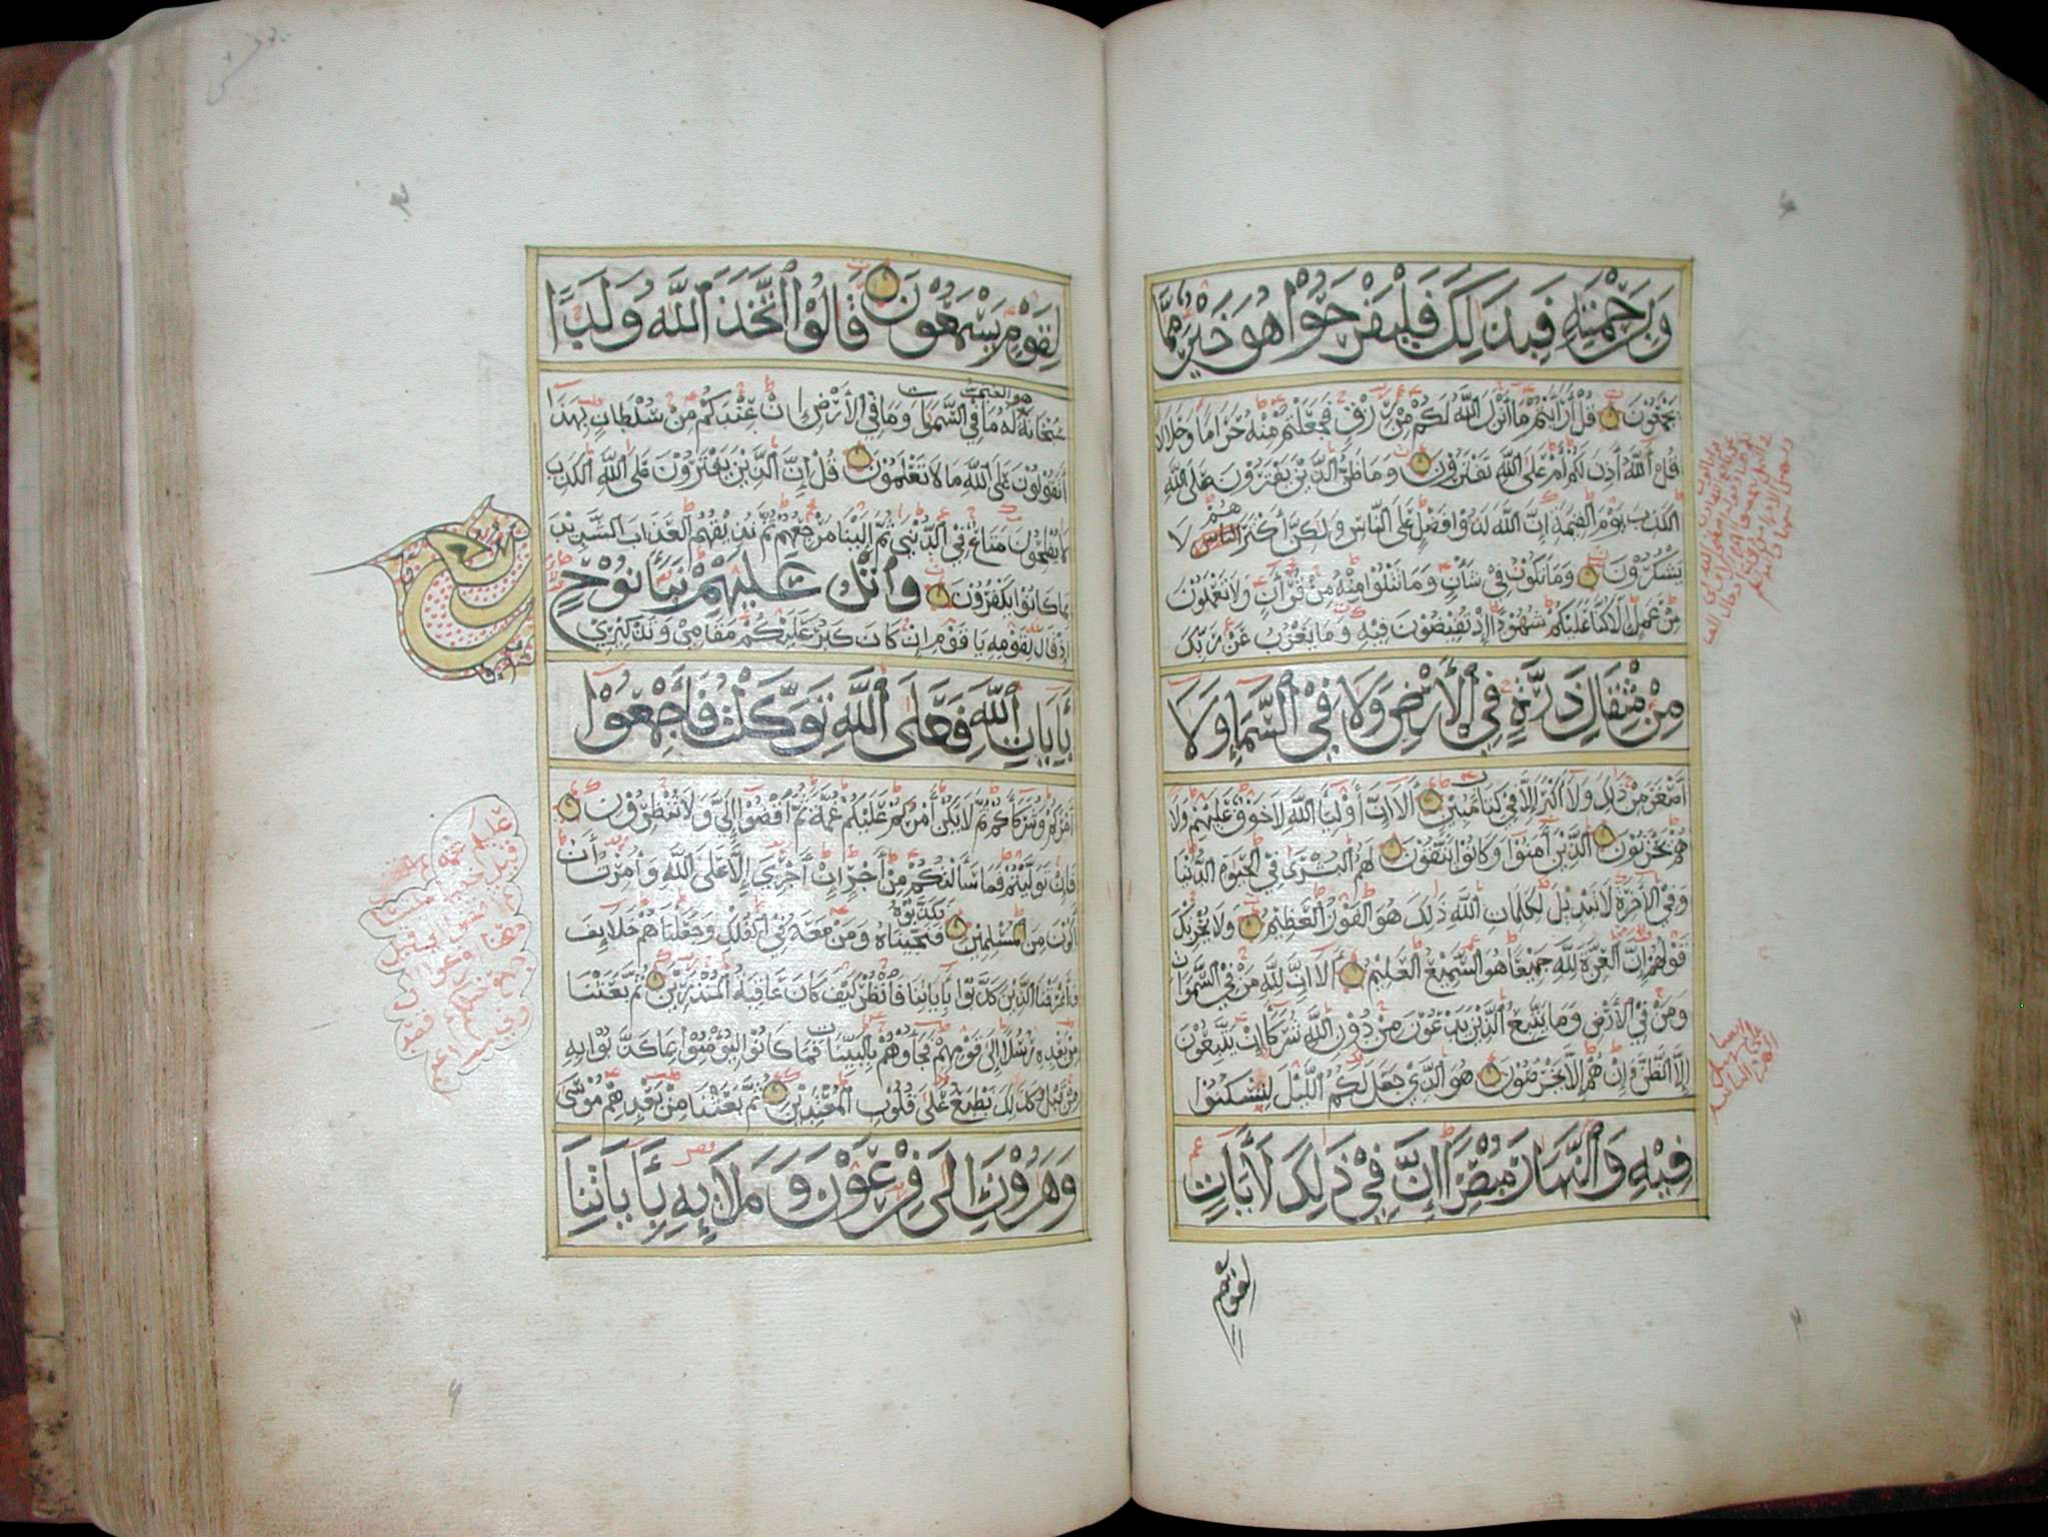 وَبِرَحْمَتِهِ فَبِذَلِكَ فَلْيَفْرَحُوا هُوَ خَيْرٌ مِمَّا
يَجْمَعُونَ قُلْ أَرَأَيْتُمْ مَا أَنْزَلَ اللَّهُ لَكُمْ مِنْ رِزْقٍ فَجَعَلْتُمْ مِنْهُ حَرَامًا وَحَلَالًا
قُلْ آللَّهُ أَذِنَ لَكُمْ أَمْ عَلَى اللَّهِ تَفْتَرُونَ وَمَا ظَنُّ الَّذِينَ يَفْتَرُونَ عَلَى اللَّهِ
الْكَذِبَ يَوْمَ الْقِيَمَةِ إِنَّ اللَّهَ لَذُوا فَضْلٍ عَلَى النَّاسِ وَلَكِنَّ أَكْثَرَهُمْ لَا
يَشْكُرُونَ وَمَا تَكُونُ فِي شَأْنٍ وَمَا تَتْلُوا مِنْهُ مِنْ قُرْآنٍ وَلَا تَعْمَلُونَ
مِنْ عَمَلٍ إِلَّا كُنَّا عَلَيْكُمْ شُهُودًا إِذْ تُفِيضُونَ فِيهِ وَمَا يَعْزُبُ عَنْ رَبِّكَ
مِنْ مِثْقَالِ ذَرَّةٍ فِي الْأَرْضِ وَلَا فِي السَّمَاءِ وَلَا
أَصْغَرَ مِنْ ذَلِكَ وَلَا أَكْبَرَ إِلَّا فِي كِتَابٍ مُبِينٍ أَلَا إِنَّ أَوْلِيَاءَ اللَّهِ لَا خَوْفٌ عَلَيْهِمْ وَلَا
هُمْ يَحْزَنُونَ الَّذِينَ آمَنُوا وَكَانُوا يَتَّقُونَ لَهُمُ الْبُشْرَى فِي الْحَيَوةِ الدُّنْيَا
وَفِي الْآخِرَةِ لَا تَبْدِيلَ لِكَلِمَاتِ اللَّهِ ذَلِكَ هُوَ الْفَوْزُ الْعَظِيمُ وَلَا يَحْزُنْكَ
قَوْلُهُمْ إِنَّ الْعِزَّةَ لِلَّهِ جَمِيعًا هُوَ السَّمِيعُ الْعَلِيمُ أَلَا إِنَّ لِلَّهِ مَنْ فِي السَّمَوَاتِ
وَمَنْ فِي الْأَرْضِ وَمَا يَتَّبِعُ الَّذِينَ يَدْعُونَ مِنْ دُونِ اللَّهِ شُرَكَاءَ إِنْ يَتَّبِعُونَ
إِلَّا الظَّنَّ وَإِنْ هُمْ إِلَّا يَخْرُصُونَ هُوَ الَّذِي جَعَلَ لَكُمُ اللَّيْلَ لِتَسْكُنُوا
فِيهِ وَالنَّهَارَ مُبْصِرًا إِنَّ فِي ذَلِكَ لَآيَاتٍ
لِقَوْمٍ
لِقَوْمٍ يَسْمَعُونَ قَالُوا اتَّخَذَ اللَّهُ وَلَدًا
سُبْحَانَهُ هُوَ الْغَنِيُّ لَهُ مَا فِي السَّمَوَاتِ وَمَا فِي الْأَرْضِ إِنْ عِنْدَكُمْ مِنْ سُلْطَانٍ بِهَذَا
أَتَقُولُونَ عَلَى اللَّهِ مَا لَا تَعْلَمُونَ قُلْ إِنَّ الَّذِينَ يَفْتَرُونَ عَلَى اللَّهِ الْكَذِبَ
لَا يُفْلِحُونَ مَتَاعٌ فِي الدُّنْيَا ثُمَّ إِلَيْنَا مَرْجِعُهُمْ ثُمَّ نُذِيقُهُمُ الْعَذَابَ الشَّدِيدَ
بِمَا كَانُوا يَكْفُرُونَ وَاتْلُ عَلَيْهِمْ نَبَأَ نُوحٍ
إِذْ قَالَ لِقَوْمِهِ يَا قَوْمِ إِنْ كَانَ كَبُرَ عَلَيْكُمْ مَقَامِي وَتَذْكِيرِي
بِآيَاتِ اللَّهِ فَعَلَى اللَّهِ تَوَكَّلْتُ فَأَجْمِعُوا
أَمْرَكُمْ وَشُرَكَاءَكُمْ ثُمَّ لَا يَكُنْ أَمْرُكُمْ عَلَيْكُمْ غُمَّةً ثُمَّ اقْضُوا إِلَيَّ وَلَا تُنْظِرُونِ
فَإِنْ تَوَلَّيْتُمْ فَمَا سَأَلْتُكُمْ مِنْ أَجْرٍ إِنْ أَجْرِيَ إِلَّا عَلَى اللَّهِ وَأُمِرْتُ أَنْ
أَكُونَ مِنَ الْمُسْلِمِينَ فَكَذَّبُوهُ فَنَجَّيْنَاهُ وَمَنْ مَعَهُ فِي الْفُلْكِ وَجَعَلْنَاهُمْ خَلَائِفَ
وَأَغْرَقْنَا الَّذِينَ كَذَّبُوا بِآيَاتِنَا فَانْظُرْ كَيْفَ كَانَ عَاقِبَةُ الْمُنْذَرِينَ ثُمَّ بَعَثْنَا
مِنْ بَعْدِهِ رُسُلًا إِلَى قَوْمِهِمْ فَجَاؤُوهُمْ بِالْبَيِّنَاتِ فَمَا كَانُوا لِيُؤْمِنُوا بِمَا كَذَّبُوا بِهِ
مِنْ قَبْلُ كَذَلِكَ نَطْبَعُ عَلَى قُلُوبِ الْمُعْتَدِينَ ثُمَّ بَعَثْنَا مِنْ بَعْدِهِمْ مُوسَى
وَهَرُونَ إِلَى فِرْعَوْنَ وَمَلَائِهِ بِآيَاتِنَا